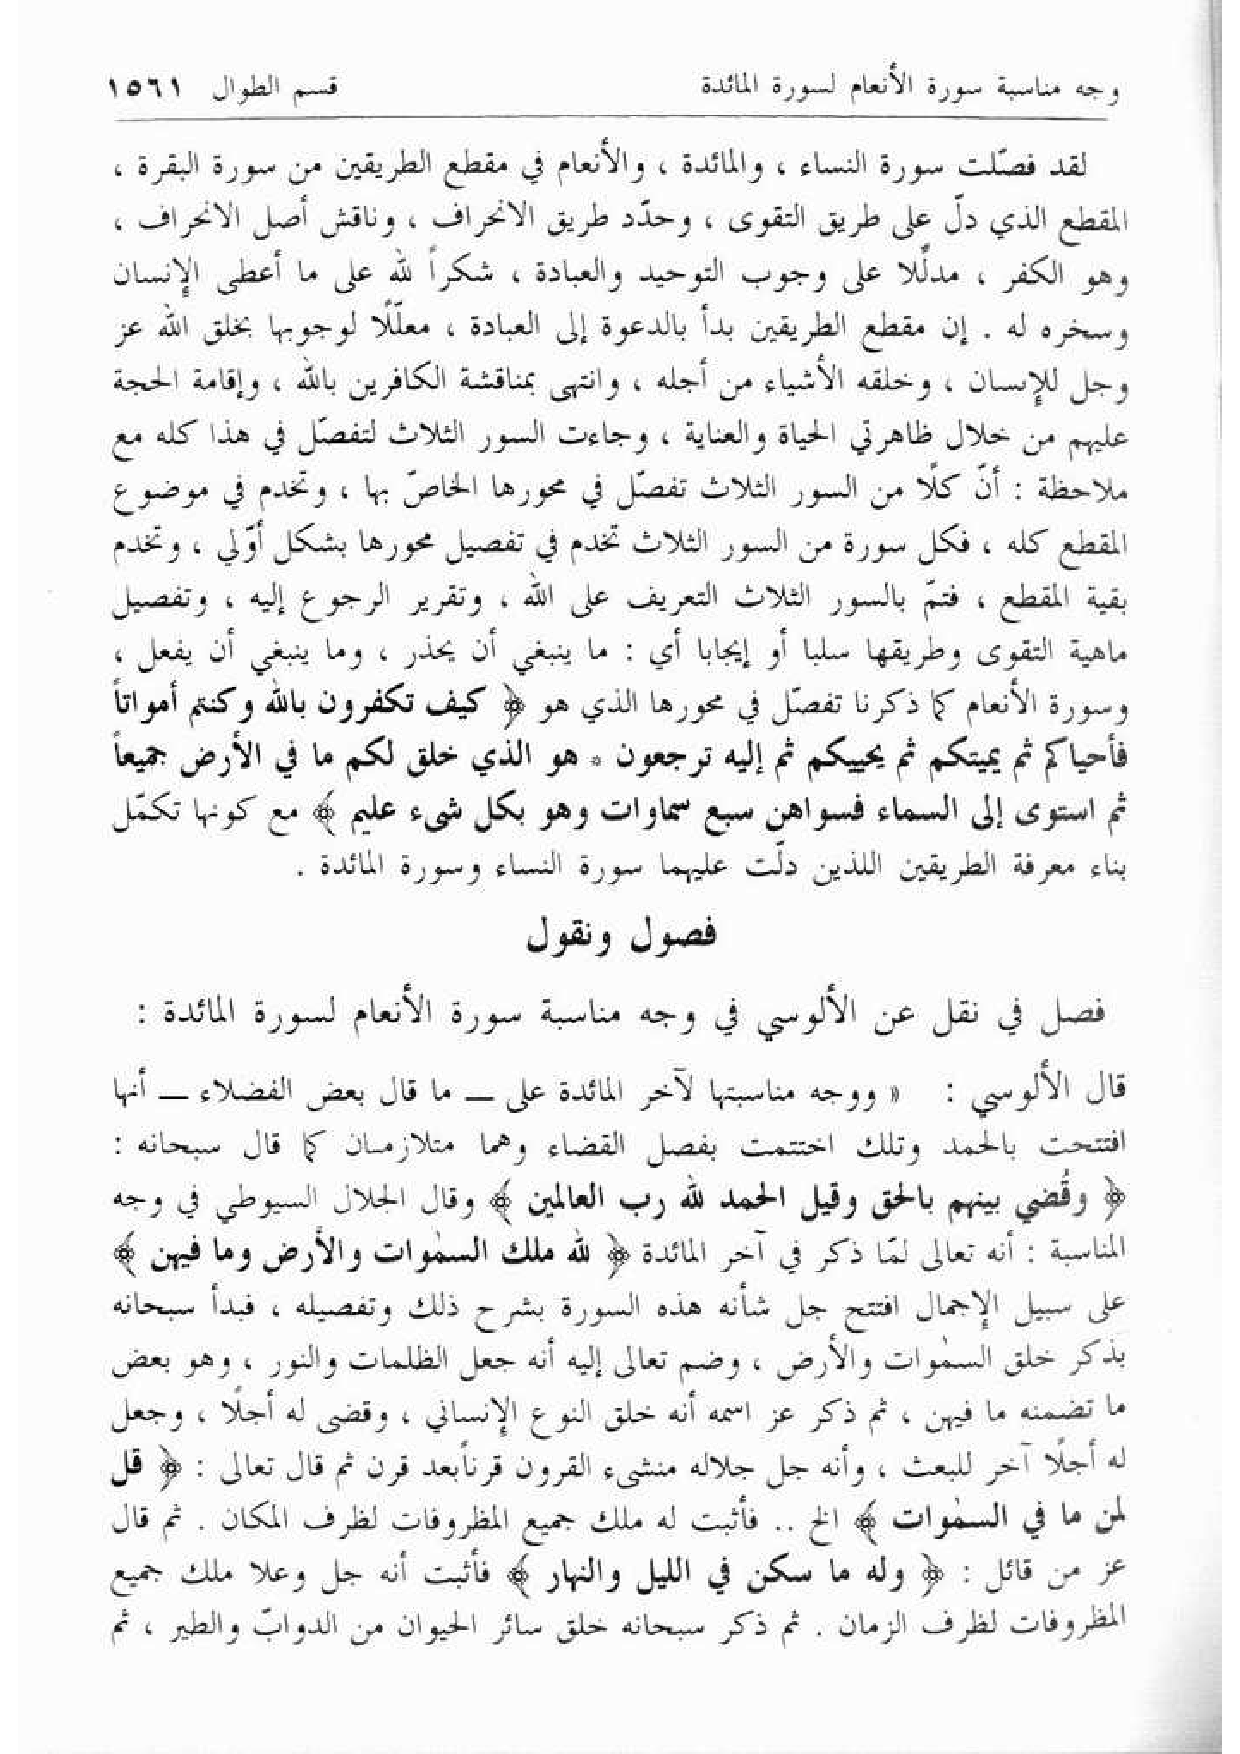 وجه مناسبة سورة الأنعام لسورة المائدة قسم الطوال ١٥٦١
لقد فصّلت سورة النساء ، والمائدة ، والأنعام في مقطع الطريقين من سورة البقرة ،
المقطع الذي دلّ على طريق التقوى ، وحدّد طريق الانحراف ، وناقش أصل الانحراف ،
وهو الكفر ، مدلّلا على وجوب التوحيد والعبادة ، شكراً لله على ما أعطى الإنسان
وسخره له . إن مقطع الطريقين بدأ بالدعوة إلى العبادة ، معلّلًا لوجوبها بخلق الله عز
وجل للإنسان ، وخلقه الأشياء من أجله ، وانتهى بمناقشة الكافرين بالله ، وإقامة الحجة
عليهم من خلال ظاهرتي الحياة والعناية ، وجاءت السور الثلاث لتفصّل في هذا كله مع
ملاحظة : أنّ كلًا من السور الثلاث تفصّل في محورها الخاصّ بها ، وتخدم في موضوع
المقطع كله ، فكل سورة من السور الثلاث تخدم في تفصيل محورها بشكل أوّلي ، وتخدم
بقية المقطع ، فتمّ بالسور الثلاث التعريف على الله ، وتقرير الرجوع إليه ، وتفصيل
ماهية التقوى وطريقها سلبا أو إيجابا أي : ما ينبغي أن يحذر ، وما ينبغي أن يفعل ،
وسورة الأنعام كما ذكرنا تفصّل في محورها الذي هو ﴿ كيف تكفرون بالله وكنتم أمواتاً
فأحياكم ثم يميتكم ثم يحييكم ثم إليه ترجعون * هو الذي خلق لكم ما في الأرض جميعاً
ثم استوى إلى السماء فسواهن سبع سماوات وهو بكل شيء عليم ﴾ مع كونها تكمّل
بناء معرفة الطريقين اللذين دلّت عليهما سورة النساء وسورة المائدة .
فصول ونقول
فصل في نقل عن الألوسي في وجه مناسبة سورة الأنعام لسورة المائدة :
قال الألوسي : « ووجه مناسبتها لآخر المائدة على – ما قال بعض الفضلاء – أنها
افتتحت بالحمد وتلك اختتمت بفصل القضاء وهما متلازمان كما قال سبحانه :
﴿ وقُضي بينهم بالحق وقيل الحمد لله رب العالمين ﴾ وقال الجلال السيوطي في وجه
المناسبة : أنه تعالى لمّا ذكر في آخر المائدة ﴿ لله ملك السمٰوات والأرض وما فيهن ﴾
على سبيل الإجمال افتتح جل شأنه هذه السورة بشرح ذلك وتفصيله ، فبدأ سبحانه
بذكر خلق السمٰوات والأرض ، وضم تعالى إليه أنه جعل الظلمات والنور ، وهو بعض
ما تضمنه ما فيهن ، ثم ذكر عز اسمه أنه خلق النوع الإنساني ، وقضى له أجلًا ، وجعل
له أجلًا آخر للبعث ، وأنه جل جلاله منشىء القرون قرناًبعد قرن ثم قال تعالى : ﴿ قل
لمن ما في السمٰوات ﴾ الخ .. فأثبت له ملك جميع المظروفات لظرف المكان . ثم قال
عز من قائل : ﴿ وله ما سكن في الليل والنهار ﴾ فأثبت أنه جل وعلا ملك جميع
المظروفات لظرف الزمان . ثم ذكر سبحانه خلق سائر الحيوان من الدوابّ والطير ، ثم